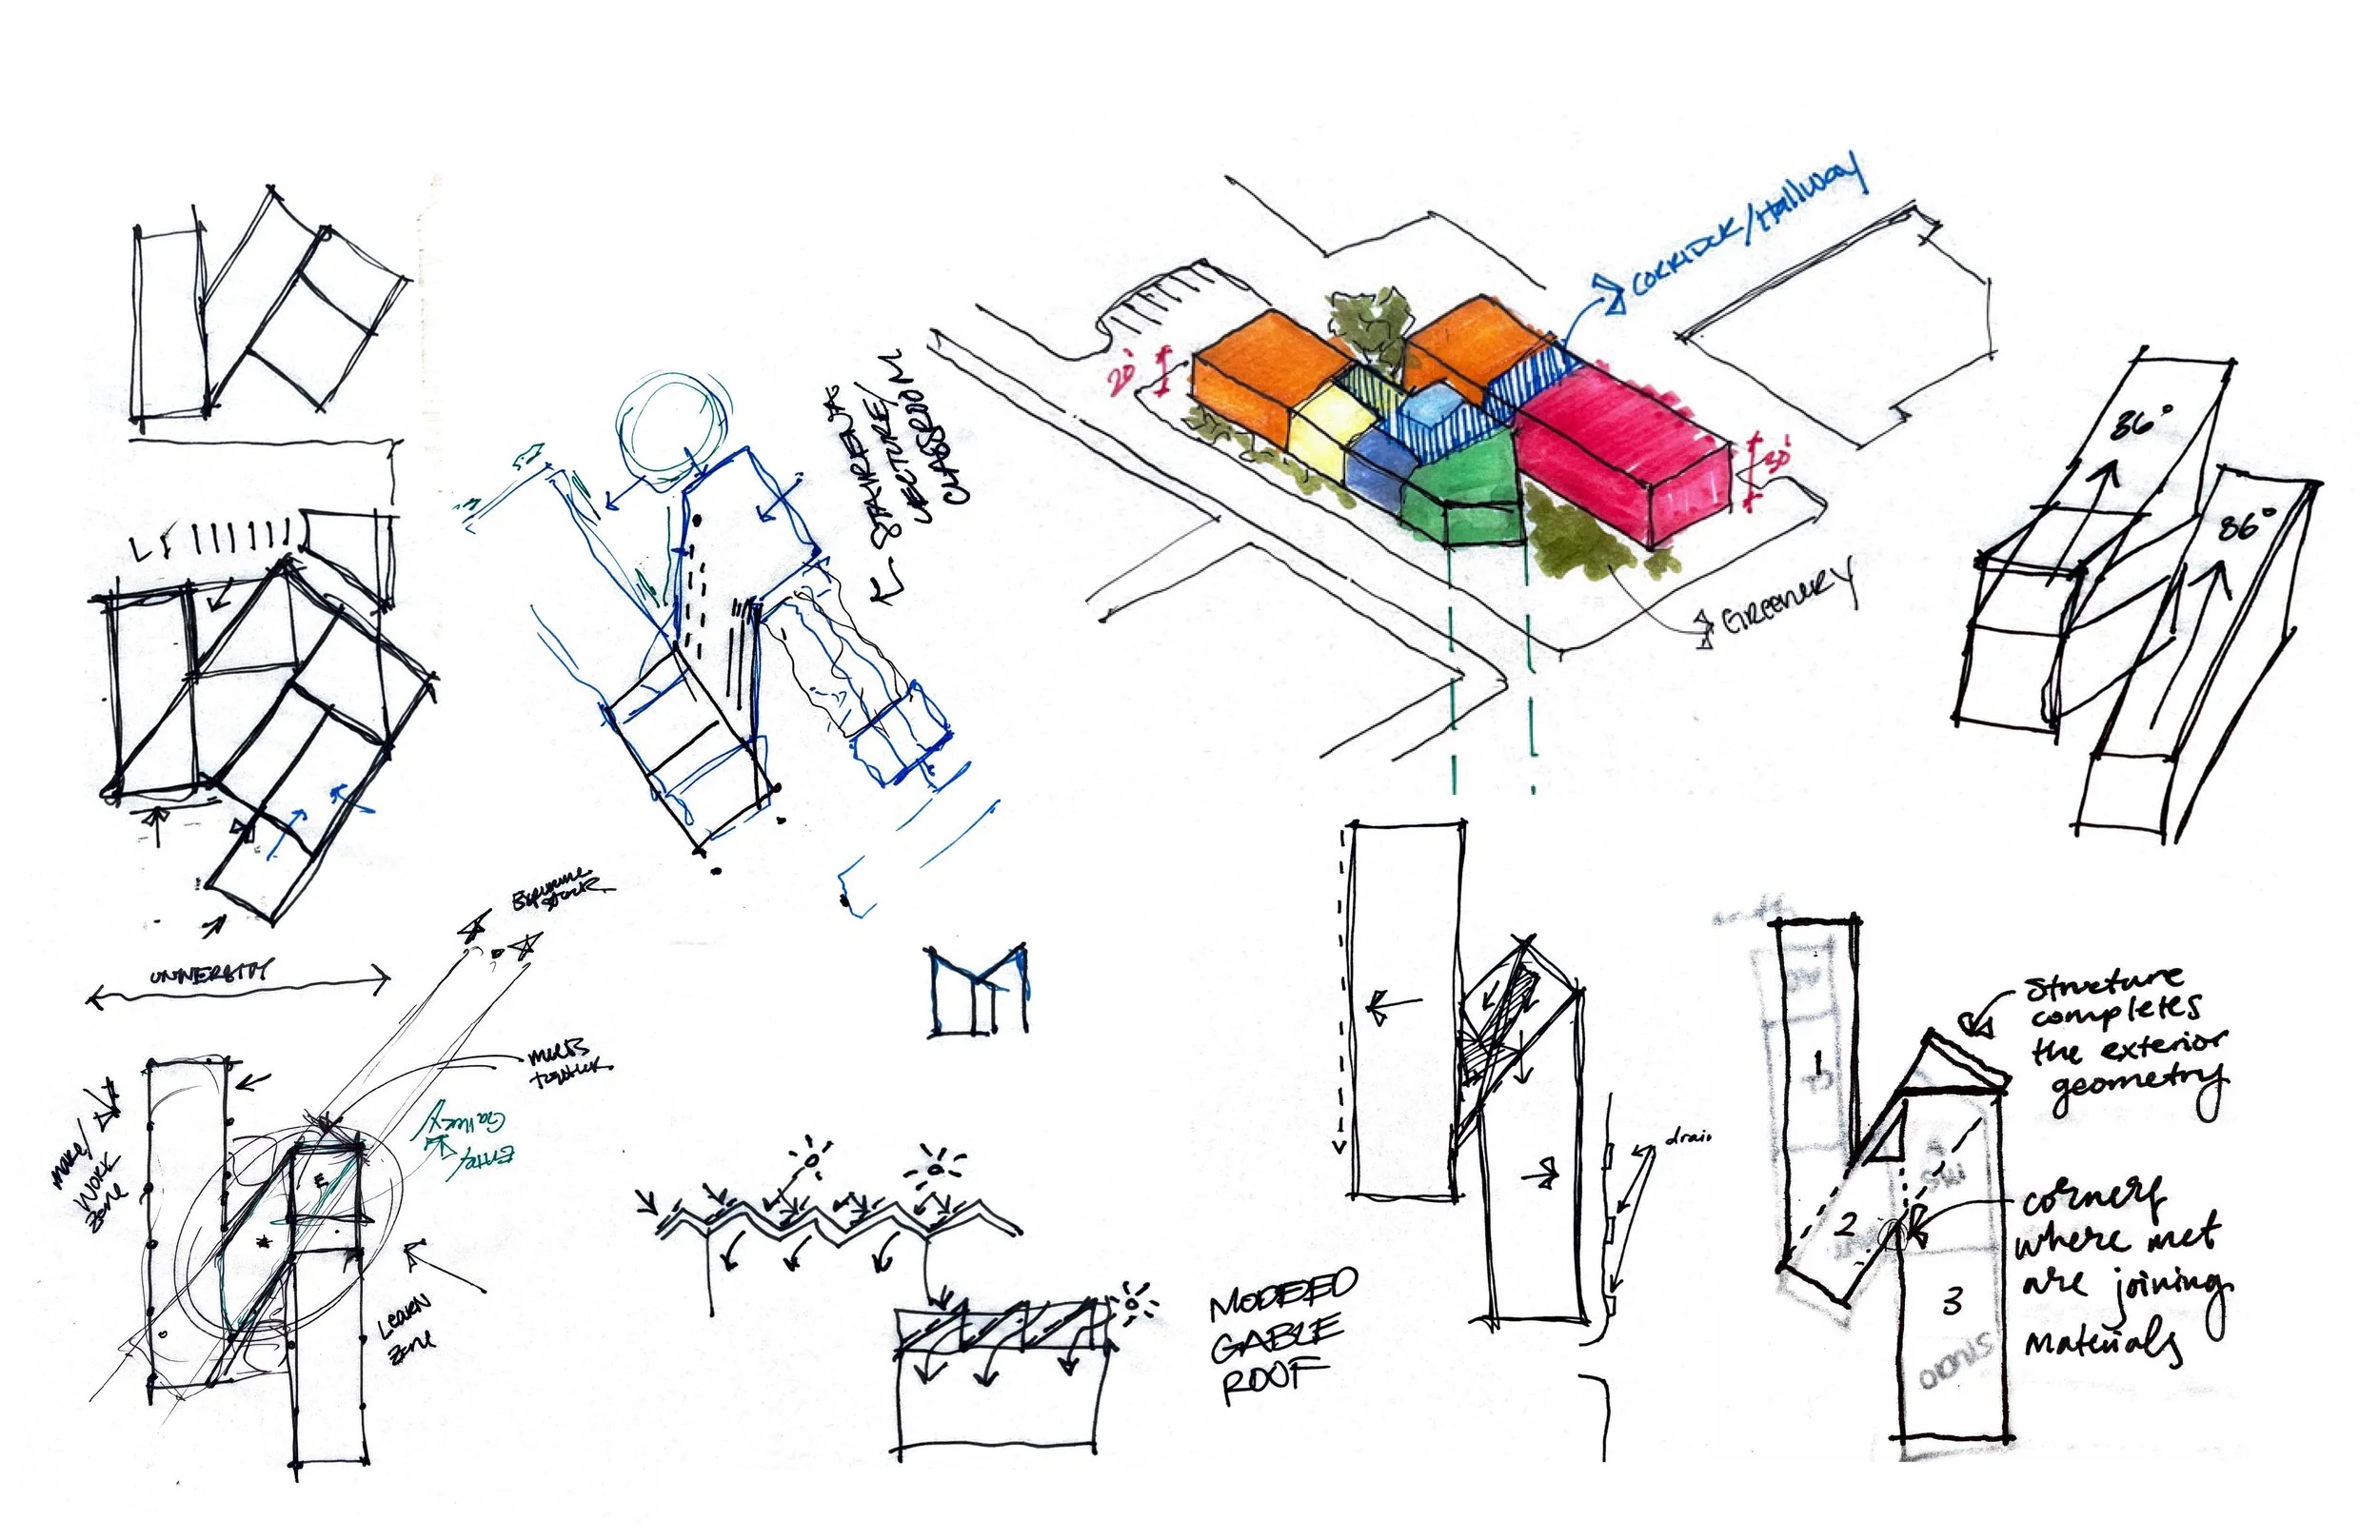 CORRIDOR/Hallway
20'
30'
GREENERY
LECTURE/
CLASSROOM
86°
86°
UNIVERSITY
MAKE/
WORK
ZONE
Gallery
Entry
LEARN
ZONE
E
GABLE
ROOF
drain
1
2
3
STUDIO
Structure
completes
the exterior
geometry
corners
where met
are joining
materials